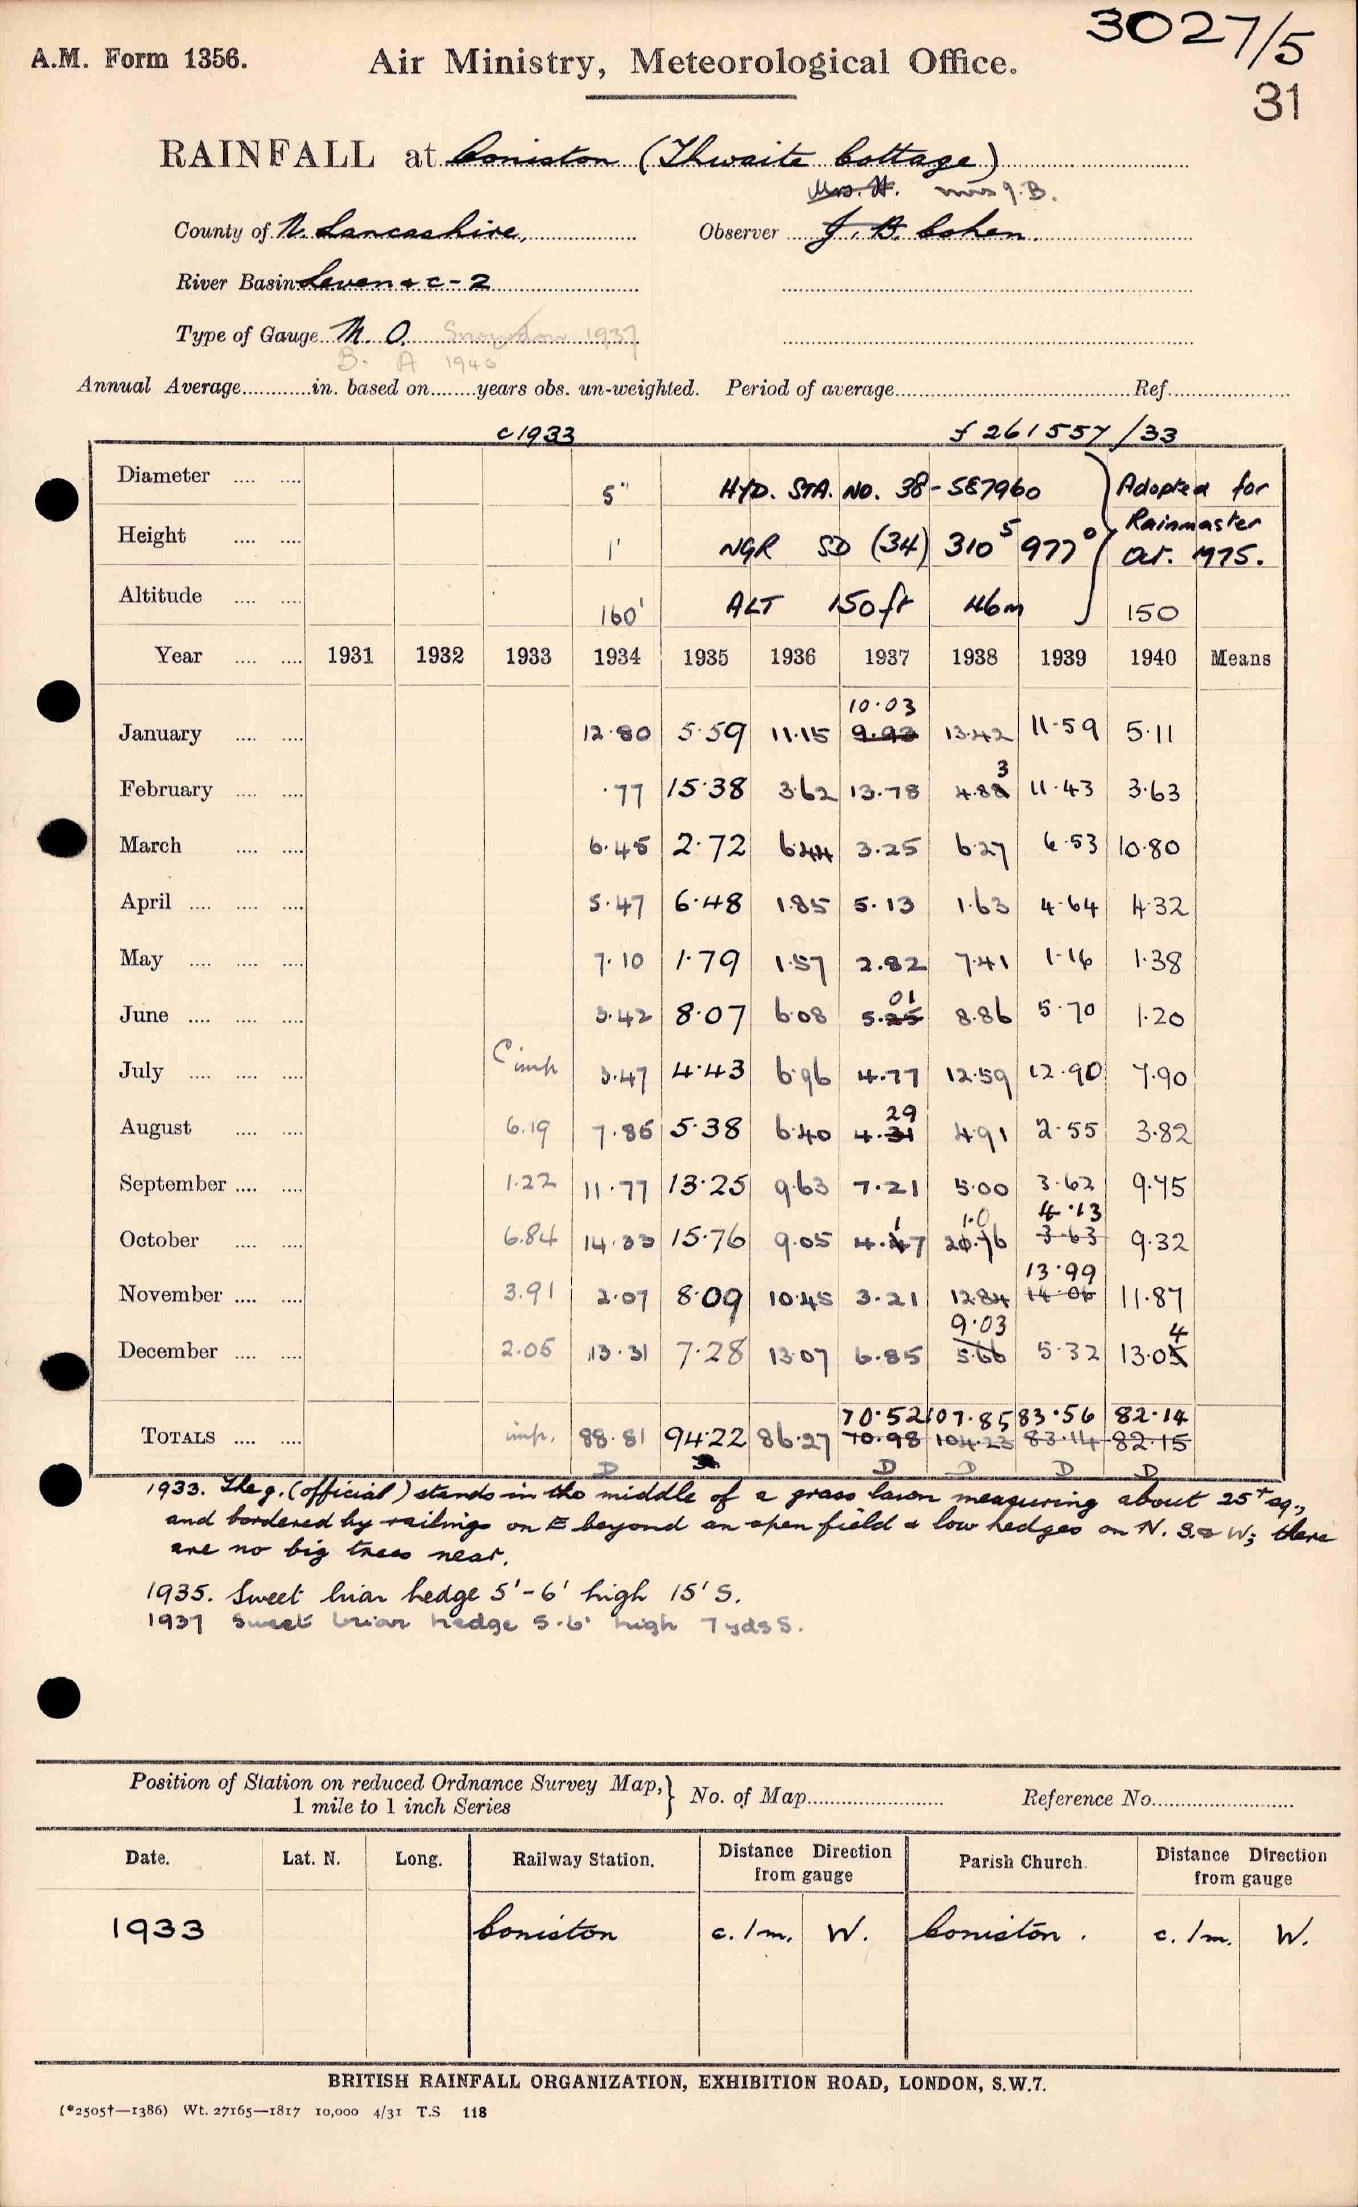 3027/5
A.M. Form 1356. Air Ministry, Meteorological Office.
31
RAINFALL at Coniston (Thwaite Cottage)
Mrs. H. Mrs J.B.
County of N. Lancashire, Observer J. B. Cohen.
River Basin Leven & c - 2
Type of Gauge M. O. Snowdon 1937
B. A 1940
Annual Average............in. based on........years obs. un-weighted. Period of average............Ref............
c1933 f 261557/33
Diameter .... .... 5" HYD. STA. NO. 38-587960 Adopted for
Height .... .... 1' NGR SD (34) 310⁵ 977⁰ Rainmaster Oct. 1975.
Altitude .... .... 160' ALT 150ft 46m 150
Year .... .... 1931 1932 1933 1934 1935 1936 1937 1938 1939 1940 Means
10.03
January .... .... 12.80 5.59 11.15 9.93 13.42 11.59 5.11
3
February .... .... .77 15.38 3.62 13.78 4.88 11.43 3.63
March .... .... 6.45 2.72 6.44 3.25 6.27 6.53 10.80
April .... .... .... 5.47 6.48 1.85 5.13 1.63 4.64 4.32
May .... .... .... 7.10 1.79 1.57 2.82 7.41 1.16 1.38
01
June .... .... .... 3.42 8.07 6.08 5.25 8.86 5.70 1.20
July .... .... .... C imp 3.47 4.43 6.96 4.77 12.59 12.90 7.90
29
August .... .... 6.19 7.86 5.38 6.40 4.31 4.91 2.55 3.82
September .... .... 1.22 11.77 13.25 9.63 7.21 5.00 3.62 9.45
1 1.0 4.13
October .... .... 6.84 14.33 15.76 9.05 4.47 20.76 3.63 9.32
13.99
November .... .... 3.91 2.07 8.09 10.45 3.21 12.84 14.06 11.87
9.03 4
December .... .... 2.05 13.31 7.28 13.07 6.85 5.66 5.32 13.05
70.52 107.85 83.56 82.14
TOTALS .... .... imp. 88.81 94.22 86.27 70.98 104.23 83.14 82.15
D D D D D
1933. The g. (official) stands in the middle of a grass lawn measuring about 25ft sq.,
and bordered by railings on E beyond an open field & low hedges on N. S & W; there
are no big trees near.
1935. Sweet briar hedge 5'-6' high 15' S.
1937 Sweet briar hedge 5-6' high 7 yds S.
Position of Station on reduced Ordnance Survey Map, 1 mile to 1 inch Series } No. of Map............ Reference No............
Date. Lat. N. Long. Railway Station. Distance Direction from gauge Parish Church. Distance Direction from gauge
1933 Coniston c. 1m. W. Coniston. c. 1m. W.
BRITISH RAINFALL ORGANIZATION, EXHIBITION ROAD, LONDON, S.W.7.
(*2505†—1386) Wt. 27165—1817 10,000 4/31 T.S. 118